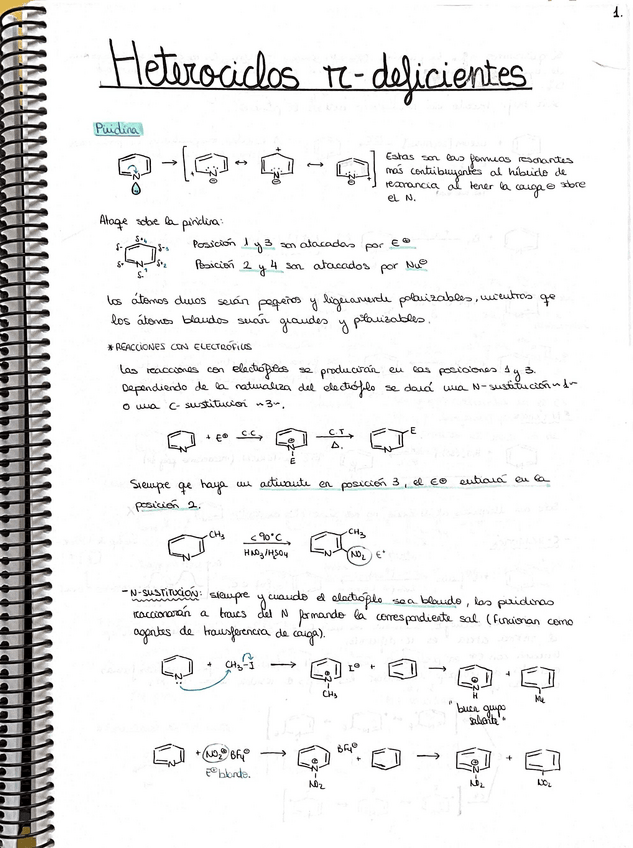 1.
Heterociclos π-deficientes
Piridina
Estas son las formas resonantes
más contribuyentes al híbrido de
resonancia al tener la carga ⊖ sobre
el N.
Ataque sobre la piridina:
Posición 1 y 3 son atacadas por E⊕
Posición 2 y 4 son atacados por Nu⊖
Los átomos duros serán pequeños y ligeramente polarizables, mientras que
los átomos blandos serán grandes y polarizables.
* REACCIONES CON ELECTRÓFILOS
Las reacciones con electrófilos se producirán en las posiciones 1 y 3.
Dependiendo de la naturaleza del electrófilo se dará una N-sustitución ~1~
o una C-sustitución ~3~.
N + E⊕ C.C ⊕ N E C.T Δ. N E
Siempre que haya un activante en posición 3, el E⊕ entrará en la
posición 2.
N CH₃ <90°C HNO₃/H₂SO₄ N CH₃ NO₂ E⁺
- N-SUSTITUCIÓN: siempre y cuando el electrófilo sea blando, las piridinas
reaccionarán a través del N formando la correspondiente sal (funcionan como
agentes de transferencia de carga).
N + CH₃-I ⊕ N CH₃ I⊖ + ⊕ N H + Me
"buen grupo
saliente"
N + NO₂⊕ BF₄⊖ ⊕ N NO₂ BF₄⊖ + ⊕ N NO₂ + NO₂
E⊕ blando.